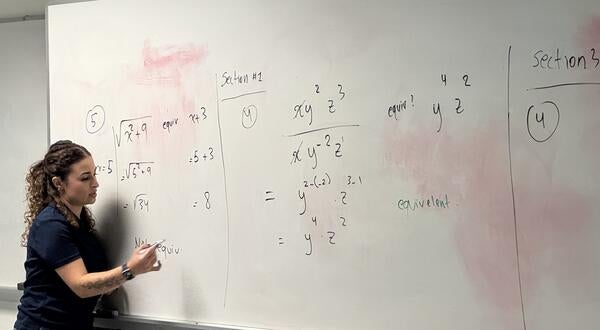 5
√x²+9 equiv x+3
x=5 =√5²+9 =5+3
=√34 =8
Not equiv.
Section #1
4
xy²z³ equiv? y⁴z²
xy⁻²z¹
= y²⁻⁽⁻²⁾ · z³⁻¹ equivalent.
= y⁴ · z²
Section 3
4